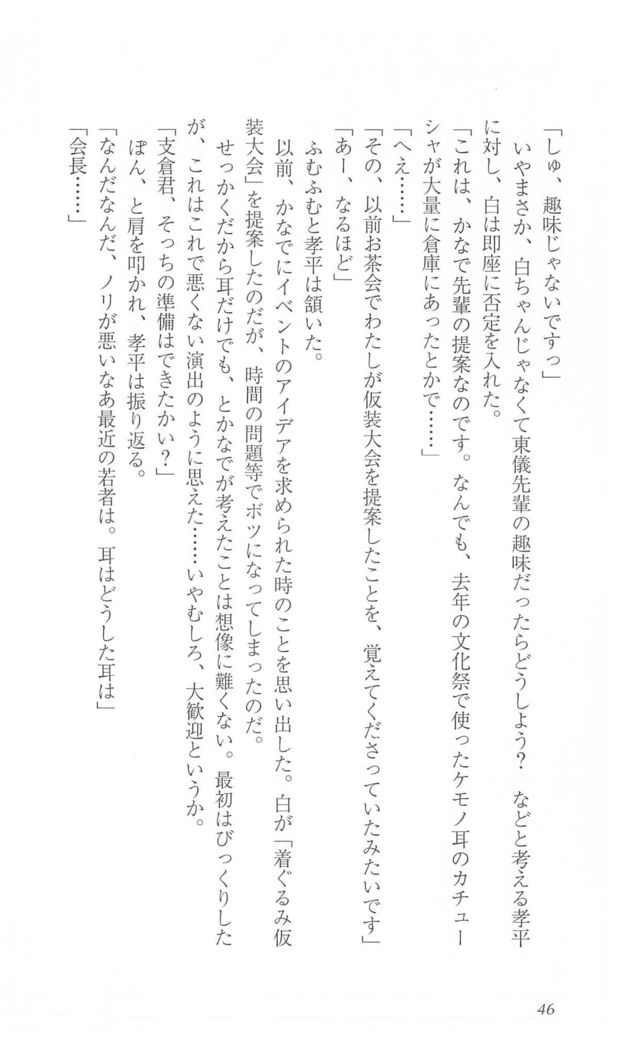 「しゅ、趣味じゃないですっ」
　いやまさか、白ちゃんじゃなくて東儀先輩の趣味だったらどうしよう？　などと考える孝平
に対し、白は即座に否定を入れた。
「これは、かなで先輩の提案なのです。なんでも、去年の文化祭で使ったケモノ耳のカチュー
シャが大量に倉庫にあったとかで……」
「へえ……」
「その、以前お茶会でわたしが仮装大会を提案したことを、覚えてくださっていたみたいです」
「あー、なるほど」
　ふむふむと孝平は頷いた。
　以前、かなでにイベントのアイデアを求められた時のことを思い出した。白が「着ぐるみ仮
装大会」を提案したのだが、時間の問題等でボツになってしまったのだ。
　せっかくだから耳だけでも、とかなでが考えたことは想像に難くない。最初はびっくりした
が、これはこれで悪くない演出のように思えた……いやむしろ、大歓迎というか。
「支倉君、そっちの準備はできたかい？」
　ぽん、と肩を叩かれ、孝平は振り返る。
「なんだなんだ、ノリが悪いなあ最近の若者は。耳はどうした耳は」
「会長……」
46